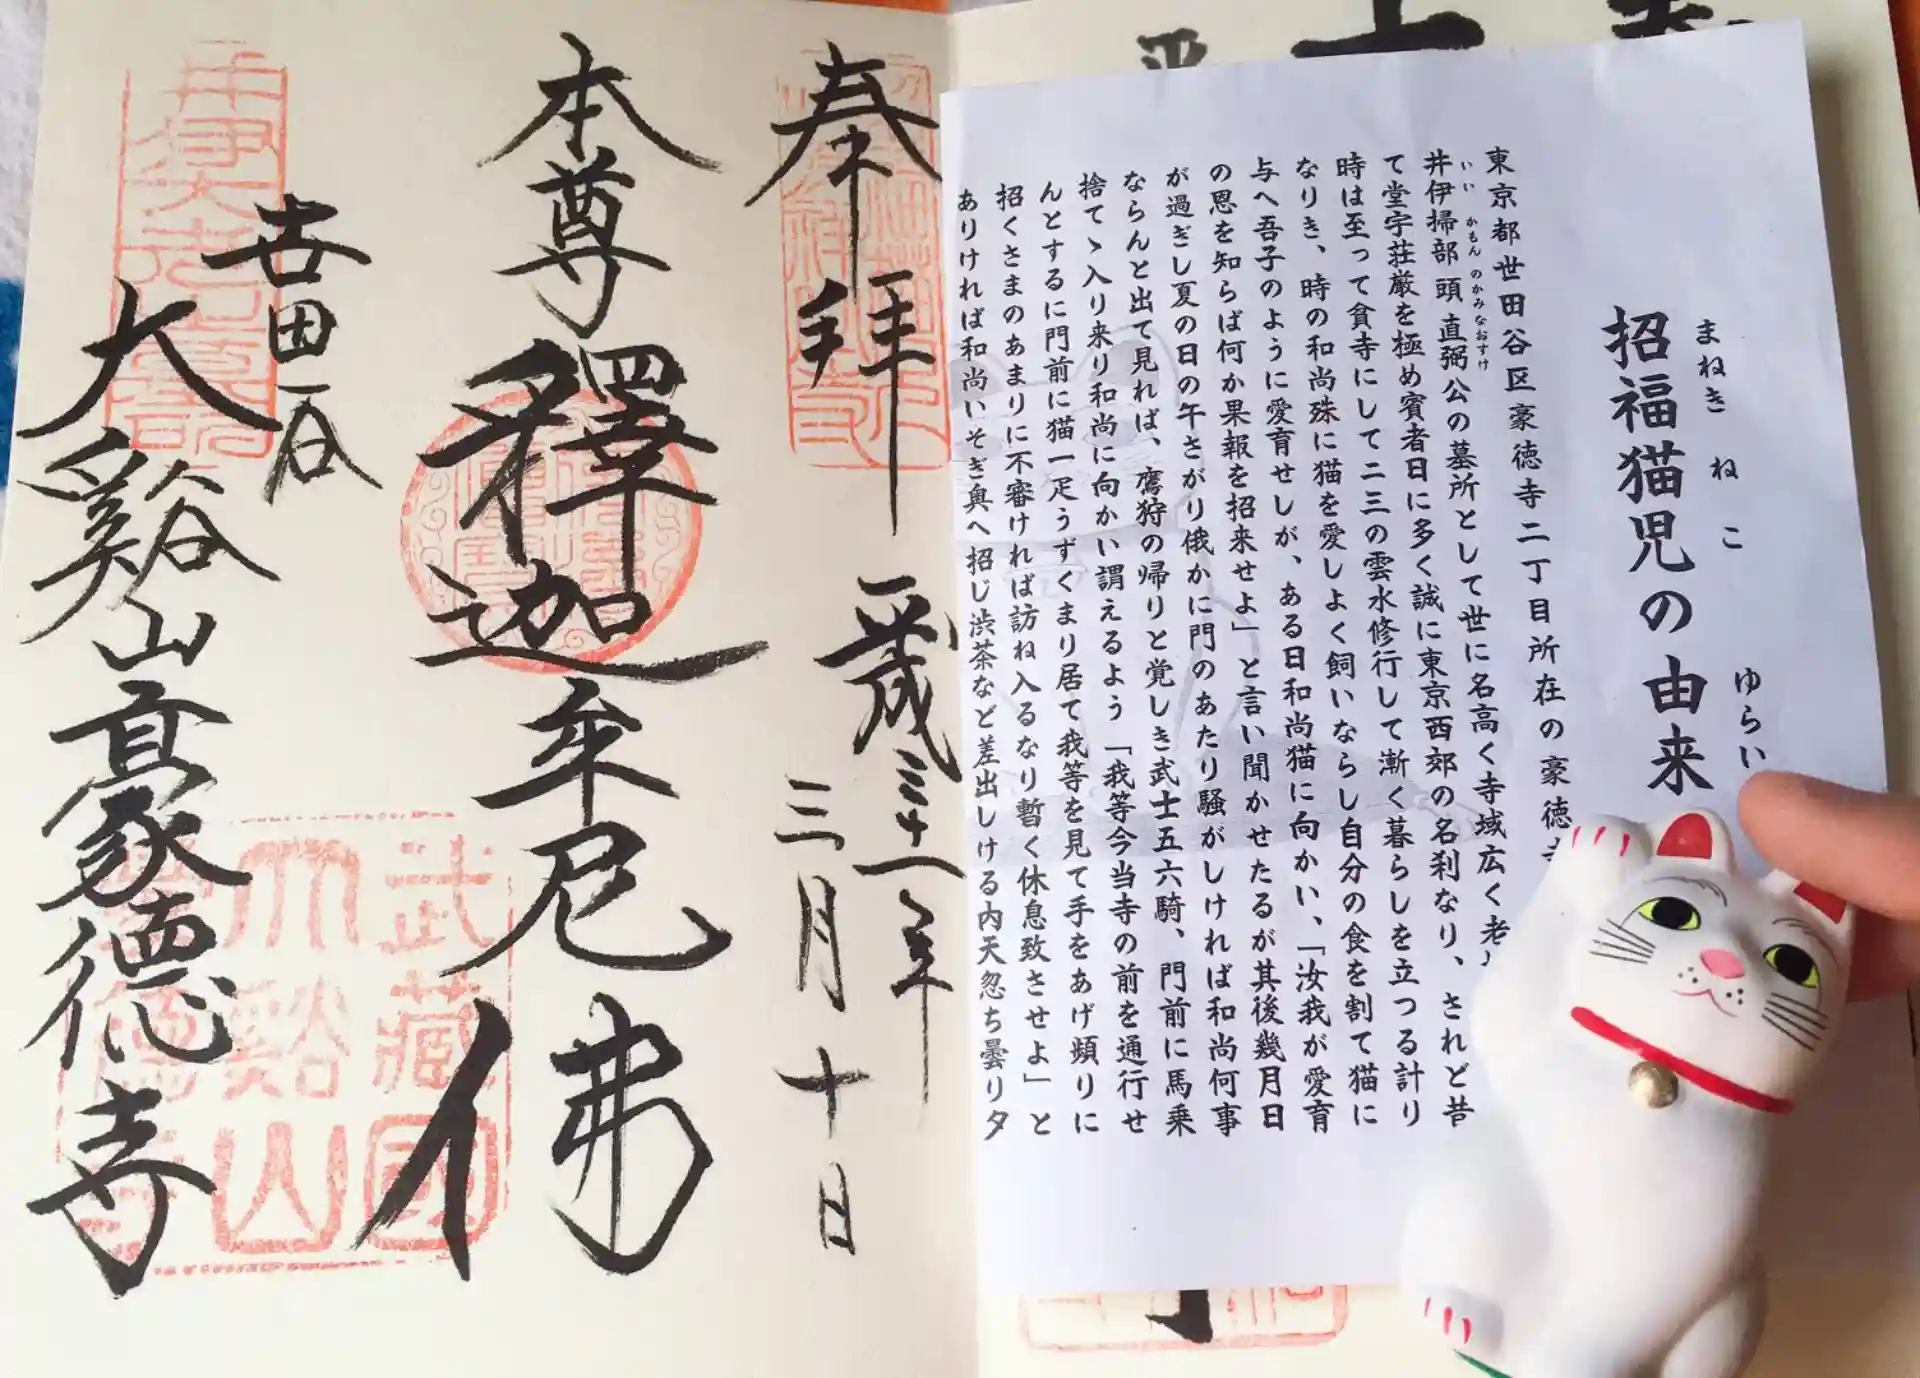 まねきねこ ゆらい
招福猫児の由来
東京都世田谷区豪徳寺二丁目所在の豪徳
いい かもんのかみなおすけ
井伊掃部頭直弼公の墓所として世に名高く寺域広く老
て堂宇荘厳を極め賓者日に多く誠に東京西郊の名刹なり、されど昔
時は至って貧寺にして二三の雲水修行して漸く暮らしを立つる計り
なりき、時の和尚殊に猫を愛しよく飼いならし自分の食を割て猫に
与へ吾子のように愛育せしが、ある日和尚猫に向かい、「汝我が愛育
の恩を知らば何か果報を招来せよ」と言い聞かせたるが其後幾月日
が過ぎし夏の日の午さがり俄かに門のあたり騒がしければ和尚何事
ならんと出て見れば、鷹狩の帰りと覚しき武士五六騎、門前に馬乗
捨てゝ入り来り和尚に向かい謂えるよう「我等今当寺の前を通行せ
んとするに門前に猫一疋うずくまり居て我等を見て手をあげ頻りに
招くさまのあまりに不審ければ訪ね入るなり暫く休息致させよ」と
ありければ和尚いそぎ奥へ招じ渋茶など差出しける内天忽ち曇り夕
奉拝
平成三十一年
三月十日
本尊 釋迦牟尼佛
世田谷
大谿山豪德寺
武藏國
大谿山
豪德寺